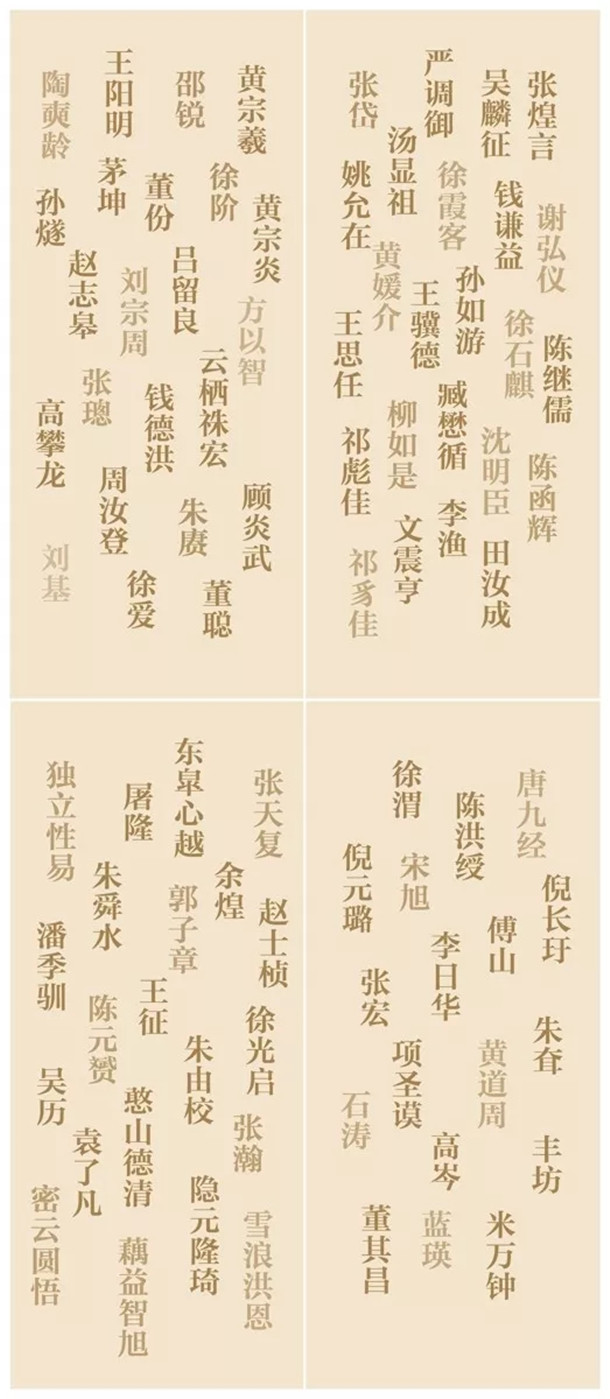 王阳明
陶奭龄
邵锐
黄宗羲
茅坤
董份
徐阶
孙燧
黄宗炎
赵志皋
刘宗周
吕留良
方以智
张璁
云栖袾宏
高攀龙
钱德洪
周汝登
朱赓
顾炎武
刘基
徐爱
董聪
严调御
张岱
吴麟征
张煌言
汤显祖
姚允在
徐霞客
钱谦益
谢弘仪
黄媛介
王骥德
孙如游
王思任
徐石麒
陈继儒
臧懋循
柳如是
祁彪佳
沈明臣
陈函辉
李渔
文震亨
田汝成
祁豸佳
东皐心越
独立性易
屠隆
张天复
朱舜水
余煌
郭子章
赵士桢
潘季驯
王征
陈元赟
徐光启
朱由校
吴历
憨山德清
张瀚
袁了凡
隐元隆琦
密云圆悟
雪浪洪恩
藕益智旭
徐渭
唐九经
陈洪绶
倪元璐
宋旭
倪长玗
傅山
李日华
张宏
朱耷
项圣谟
黄道周
石涛
高岑
丰坊
董其昌
蓝瑛
米万钟